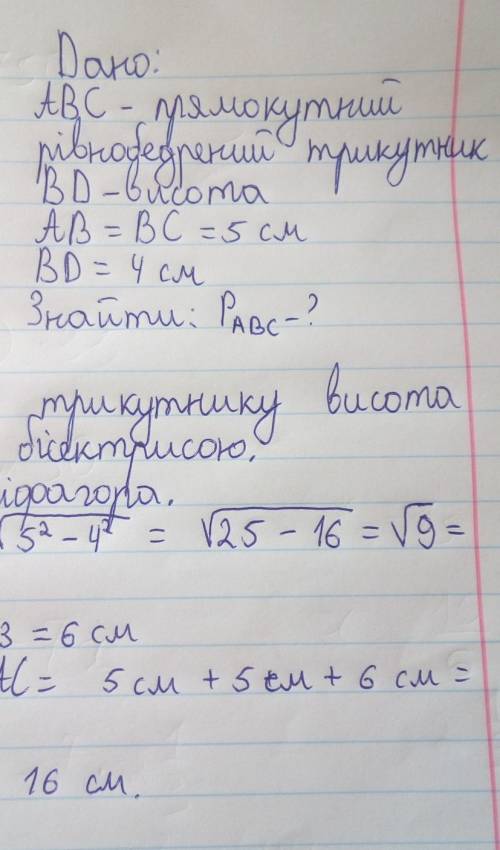 Дано:
ABC - прямокутний
рівнобедрений трикутник
BD - висота
AB = BC = 5 см
BD = 4 см
Знайти: P_ABC - ?
трикутнику висота
бісектрисою.
іфагора.
√5² - 4² = √25 - 16 = √9 =
3 = 6 см
AC = 5 см + 5 см + 6 см =
16 см.